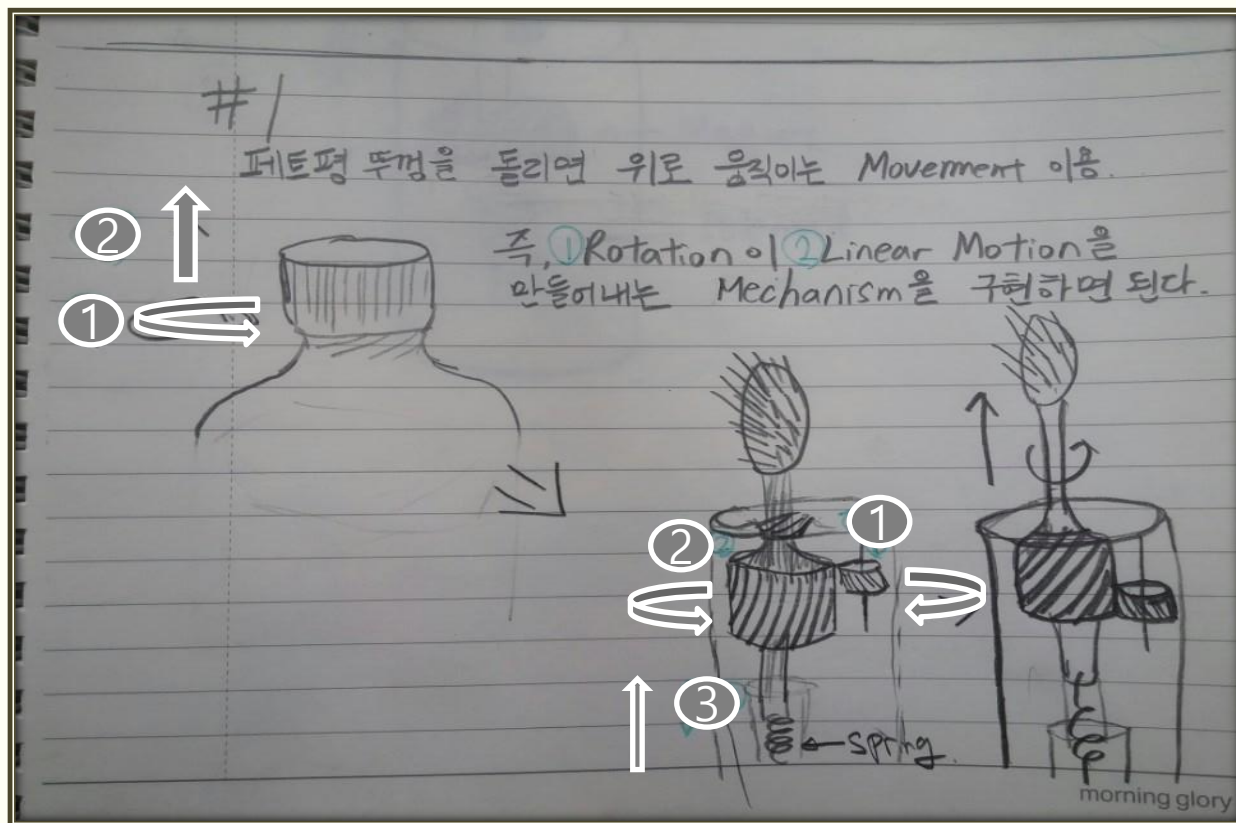 #1
페트평 뚜껑을 돌리면 위로 움직이는 Movement 이용.
②
즉, ①Rotation이 ②Linear Motion을
①
만들어내는 Mechanism을 구현하면 된다.
①
②
③
spring
morning glory